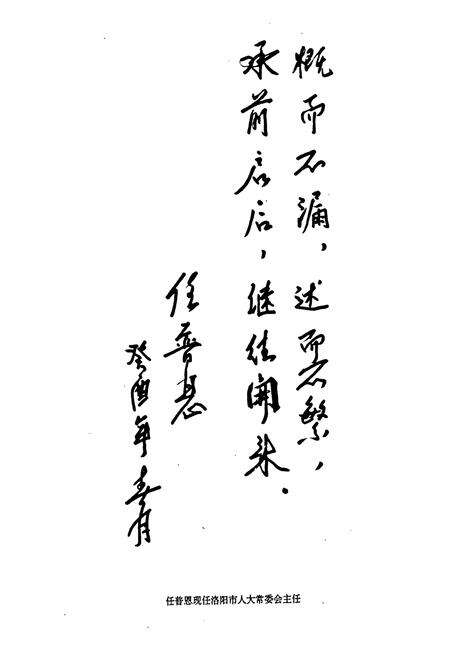 概而不漏，述而不繁，
承前启后，继往开来。
任普恩
癸酉年春月
任普恩现任洛阳市人大常委会主任